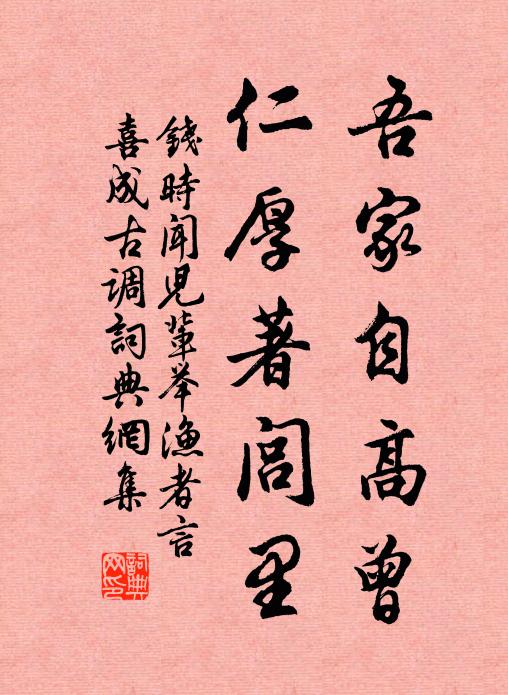 吾家自高曾
仁厚著闾里
錢時闻児輩举漁者言
喜成古调詞典網集
詞典
网印